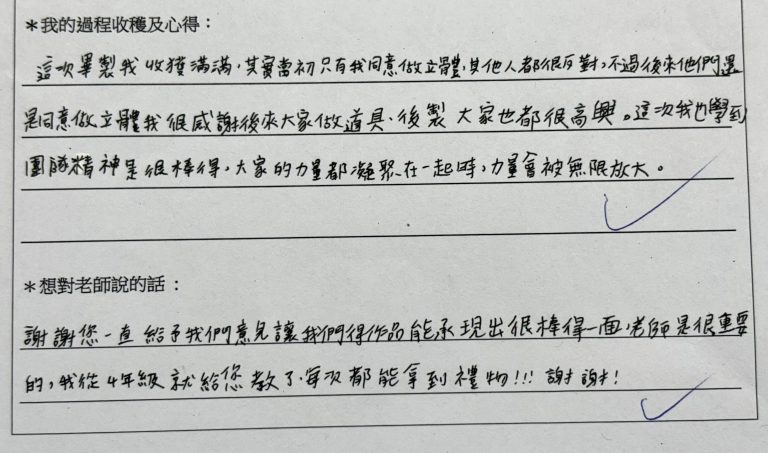 *我的過程收穫及心得：
這次畢製我收獲滿滿，其實當初只有我同意做立體，其他人都很反對，不過後來他們還
是同意做立體我很感謝後來大家做道具、後製 大家也都很高興。這次我也學到
團隊精神是很棒得，大家的力量都凝聚在一起時，力量會被無限放大。
*想對老師說的話：
謝謝您一直給予我們意見讓我們得作品能承現出很棒得一面，老師是很重要
的，我從4年級就給您教了，每次都能拿到禮物!!! 謝謝！